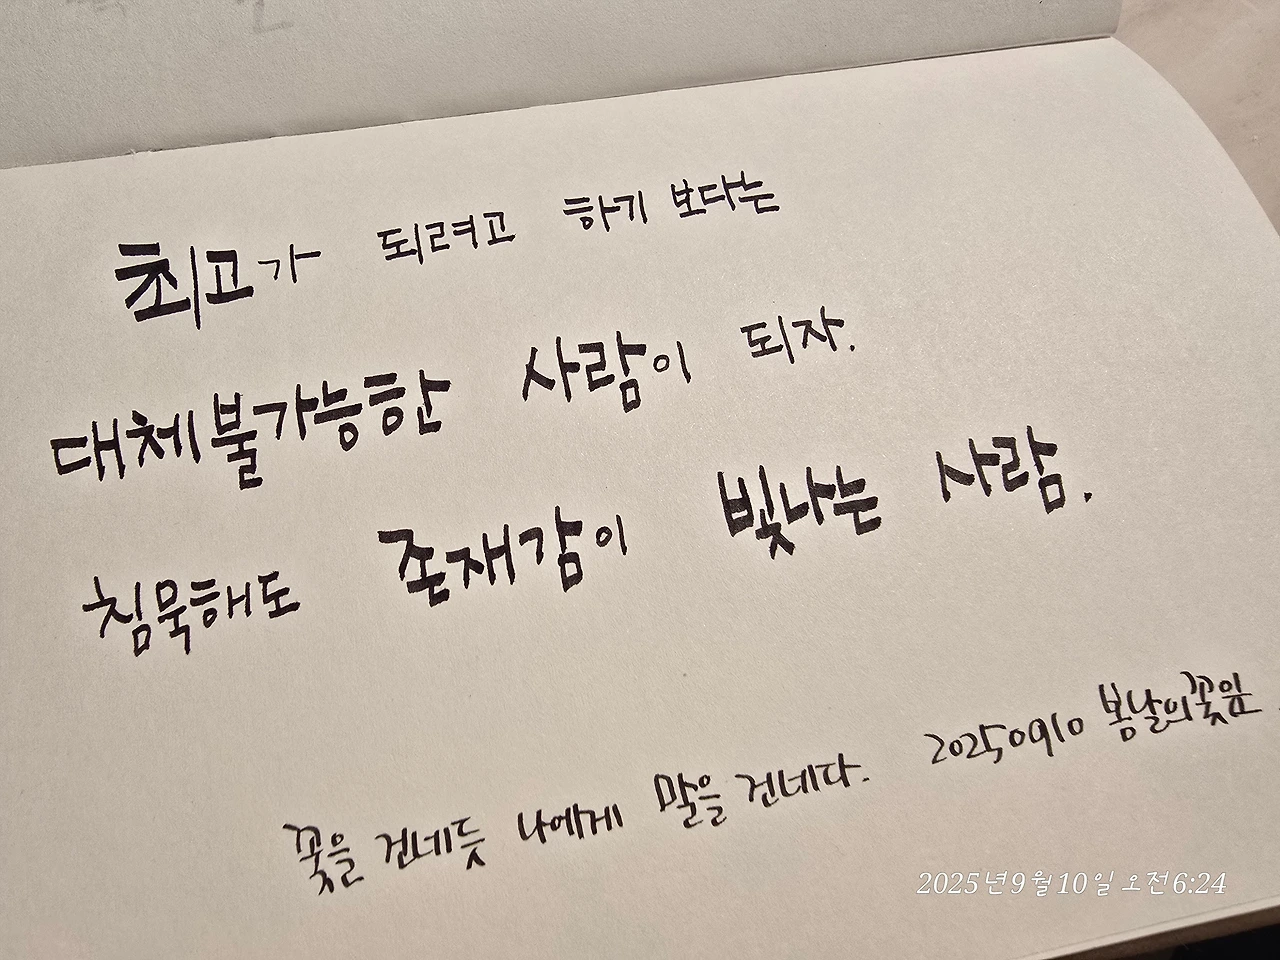 최고가 되려고 하기 보다는
대체불가능한 사람이 되자.
침묵해도 존재감이 빛나는 사람.
20250910 봄날의꽃잎.
꽃을 건네듯 나에게 말을 건네다.
2025년9월10일 오전6:24